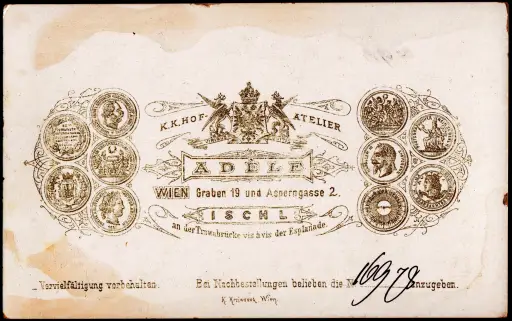 K.K.HOF-ATELIER
ADÈLE
WIEN Graben 19 und Asperngasse 2.
ISCHL
an der Traunbrücke vis à vis der Esplanade.
Vervielfältigung vorbehalten. Bei Nachbestellungen belieben die N 16978 anzugeben.
Wien